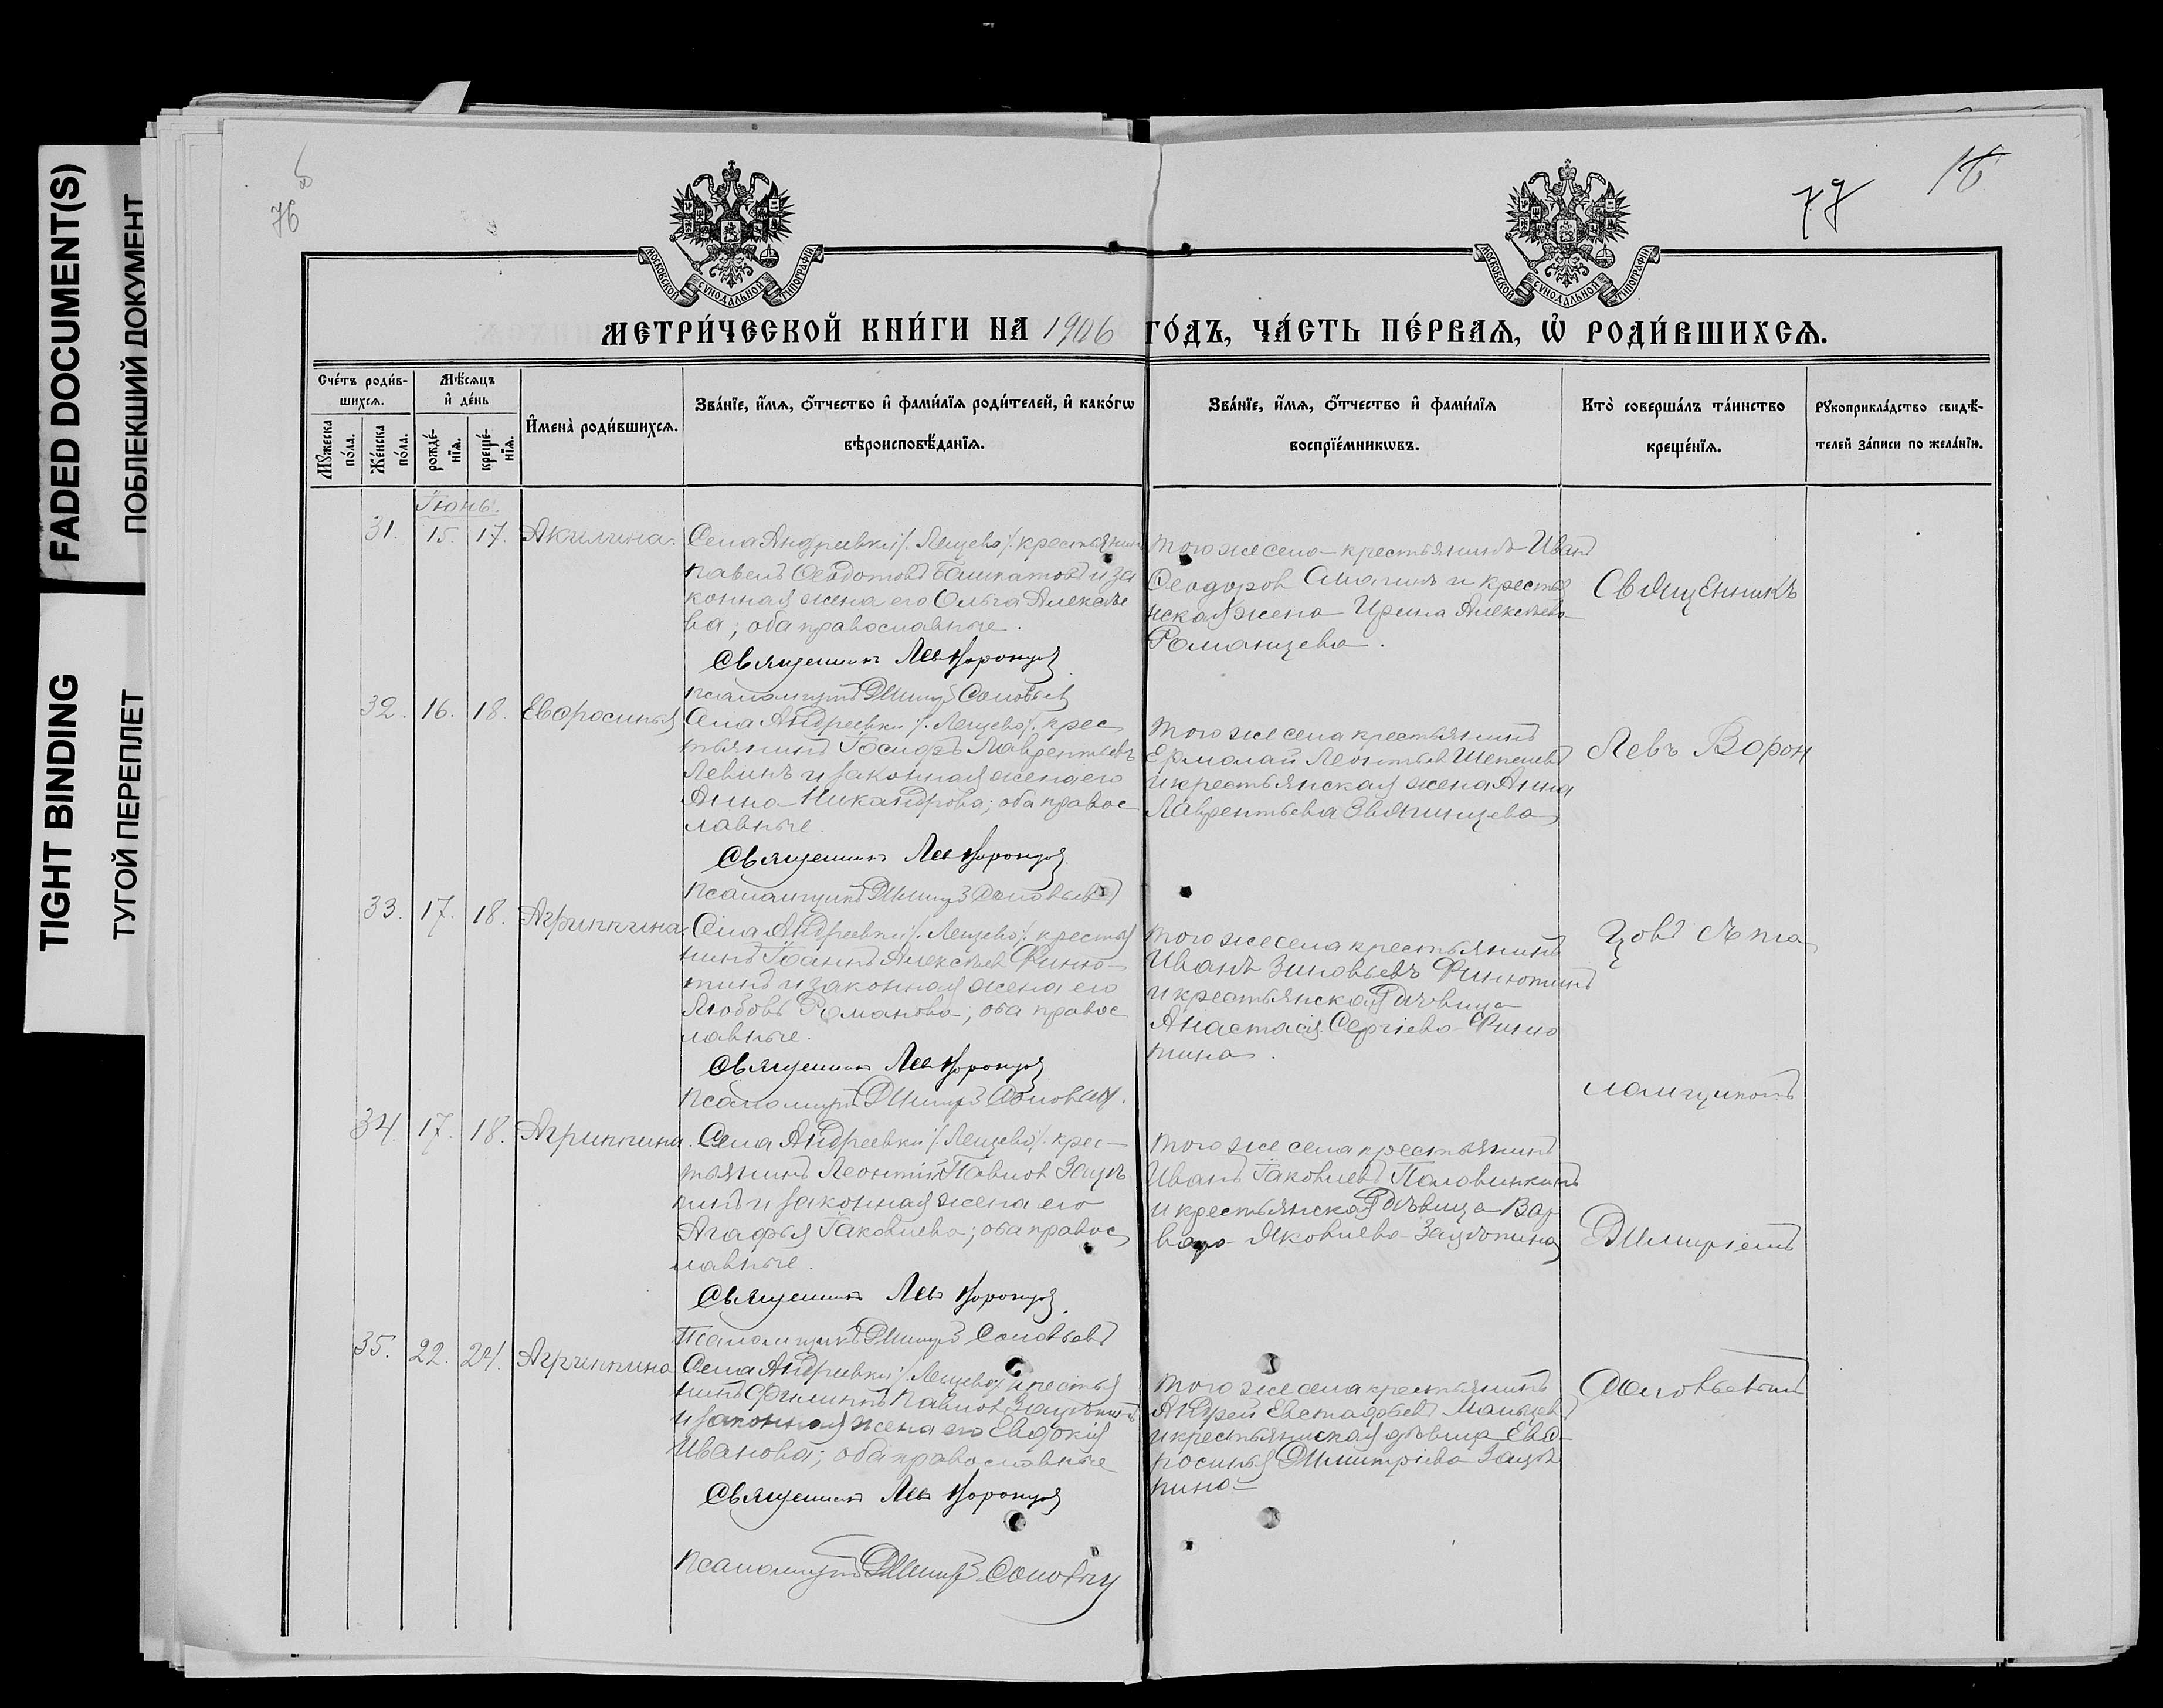 FADED DOCUMENT(S)
ПОБЛЕКШИЙ ДОКУМЕНТ
TIGHT BINDING
ТУГОЙ ПЕРЕПЛЕТ
76
77
МОСКОВСКОЙ СУНОДАЛЬНОЙ ТИПОГРАФІИ
МОСКОВСКОЙ СУНОДАЛЬНОЙ ТИПОГРАФІИ
МЕТРИ́ЧЕСКОЙ КНИ́ГИ НА 1906 ГО́ДЪ, ЧА́СТЬ ПЕ́РВАѦ, Ѡ҆ РОДИ́ВШИХСѦ.
Сче́тъ роди́в-
шихсѧ.
Мѣ́сѧцъ
и҆ де́нь
Мꙋ́жеска по́ла.
Же́нска по́ла.
рожде́-
нїѧ.
креще́-
нїѧ.
И҆мена̀ роди́вшихсѧ.
Зва́нїе, и҆́мѧ, ѻ҆́тчество и҆ фами́лїѧ роди́телей, и҆ како́гѡ
вѣроисповѣ́данїѧ.
Зва́нїе, и҆́мѧ, ѻ҆́тчество и҆ фами́лїѧ
воспрїе́мникѡвъ.
Кто̀ соверша́лъ та́инство
креще́нїѧ.
Рꙋкоприкла́дство свидѣ́-
телей за́писи по жела́нїю.
Іюнь.
31. 15. 17. Акилина.
Села Андреевки /. Лещево /. крестьянин
Павелъ Ѳеодотовъ Башкатовъ и за
конная жена его Ольга Алексѣе
ва; оба православные.
Священникъ Левъ Воронцов
Псаломщикъ Димитрій Соловьев
того же села крестьянинъ Иван
Ѳеодоров и крестья
нская жена Ирина Алексѣева
Романцева.
Священникъ
32. 16. 18. Евфросинья
Села Андреевки /. Лещево /. крес
тьянинъ Іосифъ Лаврентьевъ
Левинъ и законная жена его
Анна Никандрова; оба правос
лавные.
Священникъ Левъ Воронцов
Псаломщикъ Димитрій Соловьевъ
того же села крестьянинъ
Ермолай Леонтьев Шепелевъ
и крестьянская жена Анна
Лаврентьева Звягинцева
Левъ Ворон
33. 17. 18. Агриппина
Села Андреевки /. Лещево /. крестья
нинъ Іоаннъ Алексѣев Финю-
тинъ и законная жена его
Любовь Романова, оба правос
лавные.
Священникъ Левъ Воронцов
Псаломщикъ Димитрій Соловьев.
того же села крестьянинъ
Иванъ Зиновьевъ Финютинъ
и крестьянская дѣвица
Анастасія Сергіева Финю
тина.
цовъ съ пса
ломщикомъ
34. 17. 18. Агриппина.
Села Андреевки /. Лещево /. крес-
тьянинъ Леонтій Павлов Зацѣ
пинъ и законная жена его
Агафья Іаковлева; оба правос
лавные.
Священникъ Левъ Воронцов
Псаломщикъ Димитрій Соловьевъ
того же села крестьянинъ
Иванъ Іаковлевъ Половинкинъ
и крестьянская дѣвица Вар
вара Яковлева Зацѣпина
Димитріемъ
35. 22. 24. Агриппина
Села Андреевки /. Лещево /. крестья
нинъ Филиппъ Павлов Зацѣпинъ
и законная жена его Евдокія
Иванова; оба православные
Священникъ Левъ Воронцов
Псаломщикъ Димитрій Соловьев
того же села крестьянинъ
Андрей Евстафьевъ Мальцевъ
и крестьянская дѣвица Евф
росинья Димитріева Зацѣ
пина
Соловьевымъ